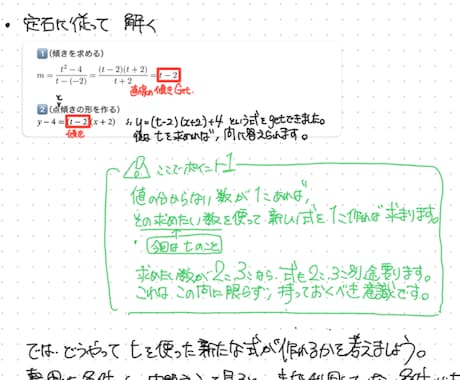 ・定石に従って 解く
1 (傾きを求める)
m = \frac{t^2-4}{t-(-2)} = \frac{(t-2)(t+2)}{t+2} = t-2
直線の傾きGet.
2 (点傾きの形を作る)
y-4=(t-2)(x+2) ∴ y=(t-2)(x+2)+4 という式をgetできました。
傾き tを求めれば、問に答えられます。
ここでポイント1
値の分からない数が1こあれば、
その求めたい数を使って新しい式を1こ作れば求まります。
・今回はtのこと
求めたい数が2こ、3こなら、式も2こ、3こ別途要ります。
これはこの問に限らず、持っておくべき意識です。
では、どうやってtを使った新たな式が作れるかを考えましょう。